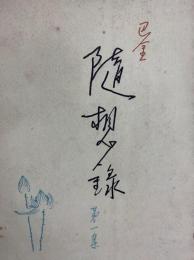 巴金
隨想錄
第一集